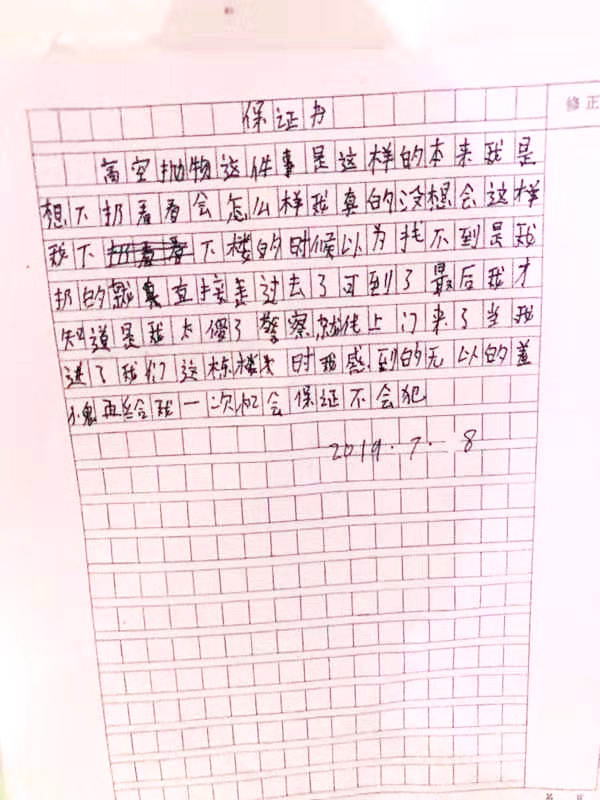 修正
保证书
高空抛物这件事是这样的本来我是
想下扔看看会怎么样我真的没想会这样
我下下楼的时候以为找不到是我
扔的就直接走过去了可到了最后我才
知道是我太傻了警察就找上门来了当我
进了我们这栋楼时我感到的无以的羞
愧再给我一次机会保证不会犯
2019.7.8